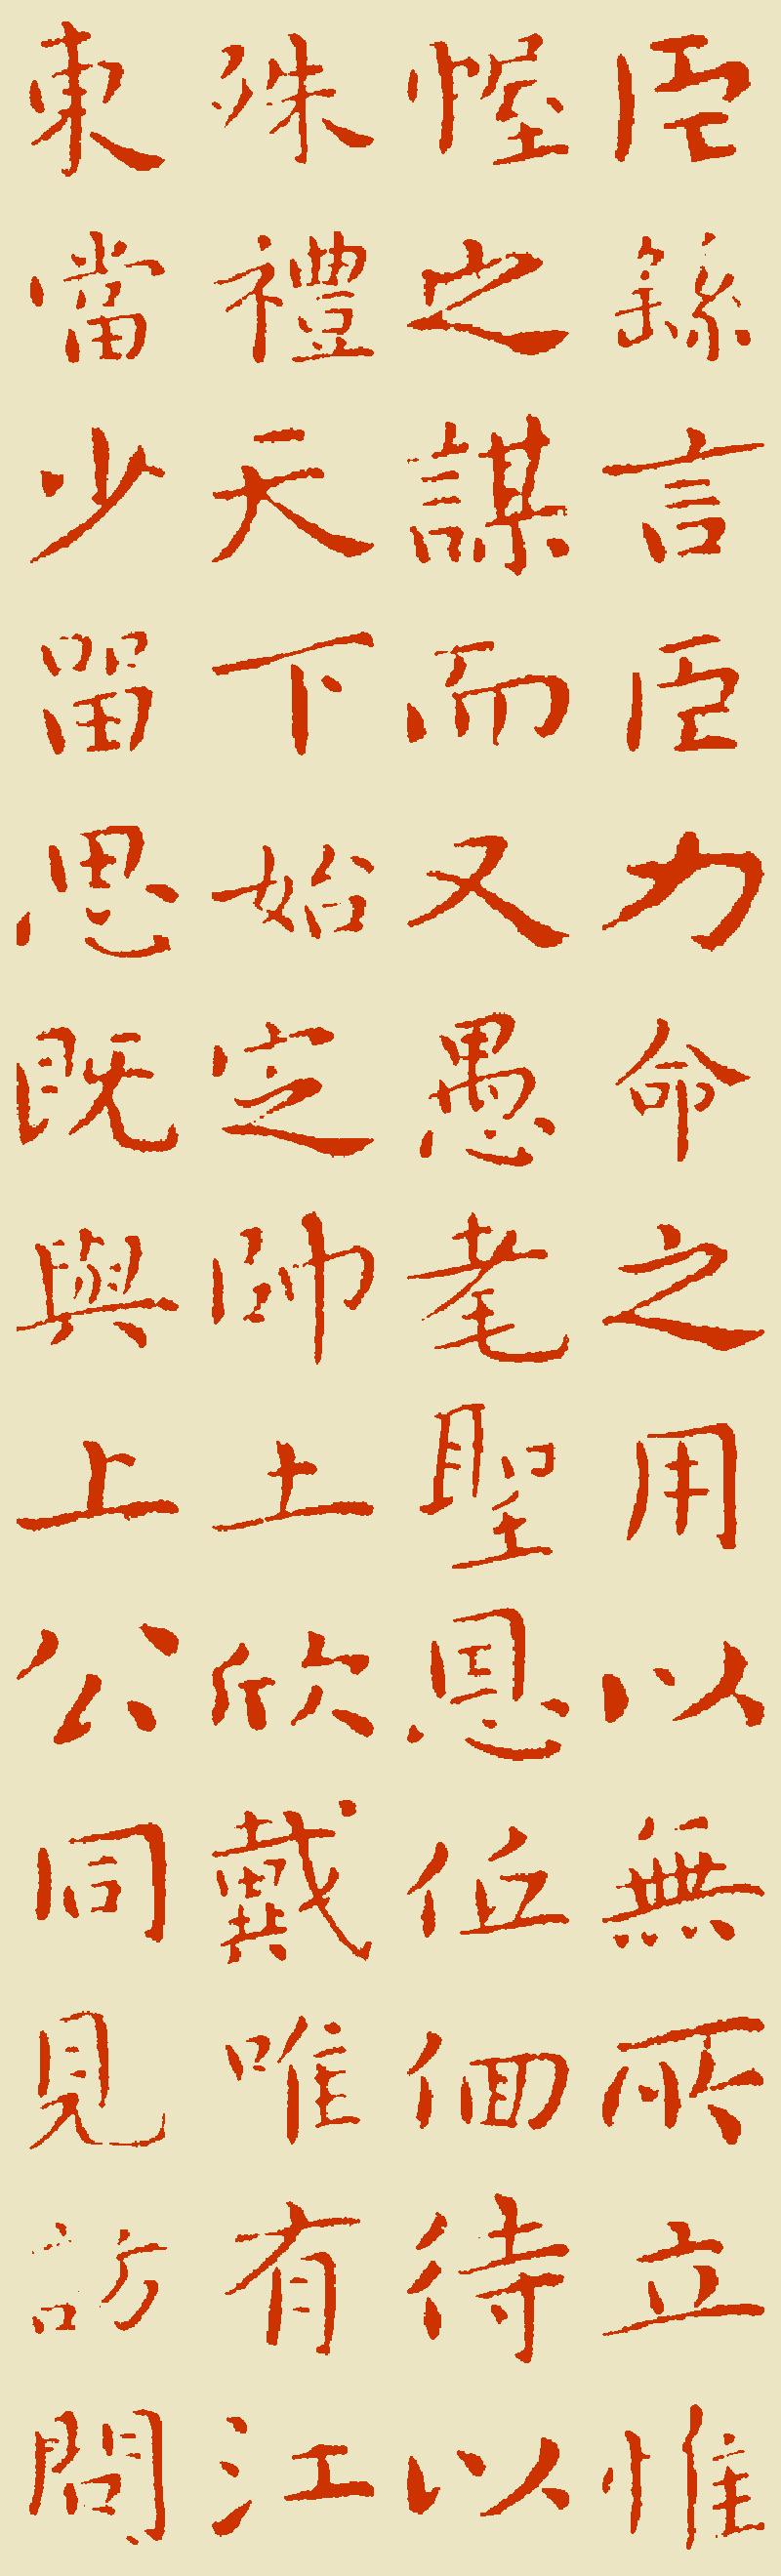 臣繇言臣力命之用以無所立惟
幄之謀而又愚耄聖恩低佪待以
殊禮天下始定帥土欣戴唯有江
東當少留思既與上公同見訪問